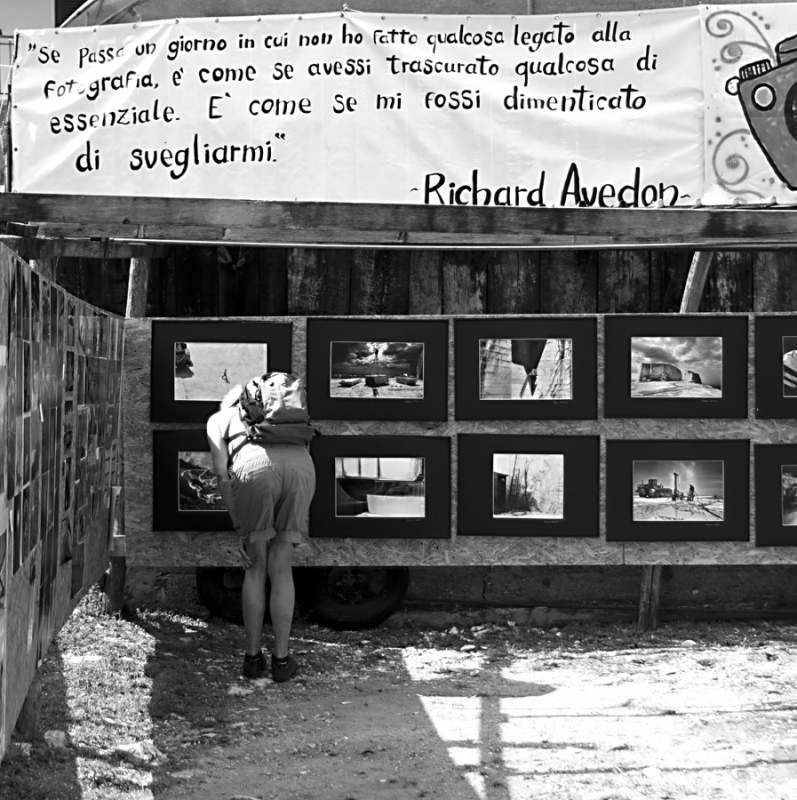 "Se Passa un giorno in cui non ho fatto qualcosa legato alla
fotografia, e' come se avessi trascurato qualcosa di
essenziale. E` come se mi fossi dimenticato
di svegliarmi."
~Richard Avedon~